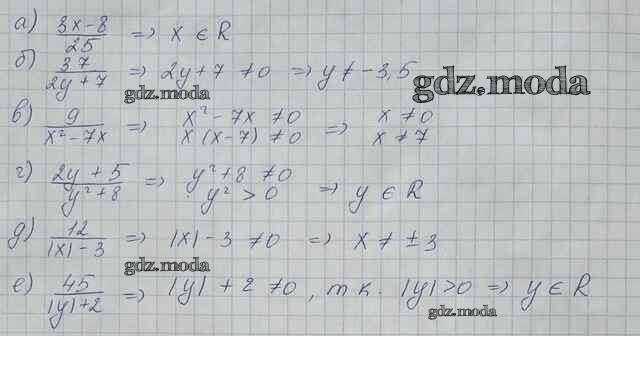 а) (3x-8)/25 => x ∈ R
б) 37/(2y+7) => 2y+7 ≠0 => y ≠ -3,5
gdz.moda
gdz.moda
в) 9/(x²-7x) => x²-7x ≠0 x(x-7) ≠0 => x ≠0 x ≠7
г) (2y+5)/(y²+8) => y²+8 ≠0 y² > 0 => y ∈ R
д) 12/(|x|-3) => |x|-3 ≠0 => x ≠ ±3
gdz.moda
е) 45/(|y|+2) => |y|+2 ≠0, т к. |y|>0 => y ∈ R
gdz.moda